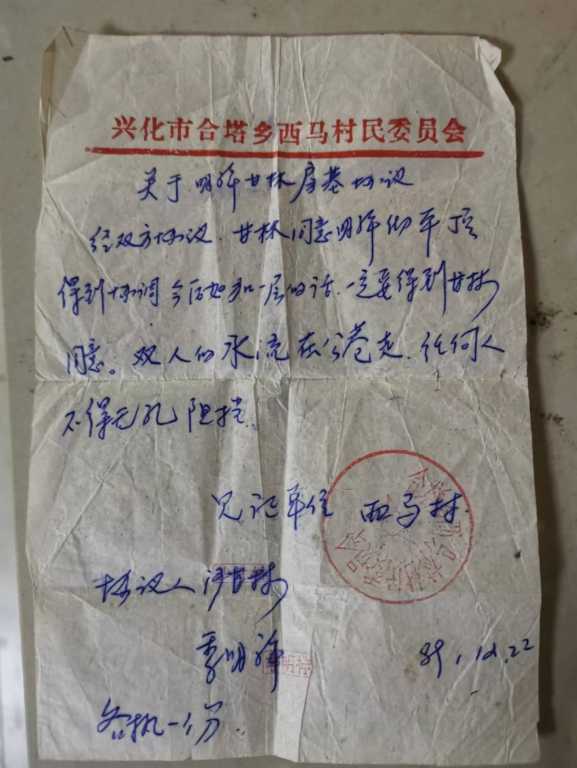 兴化市合塔乡西马村民委员会
关于明祥甘林屋基协议
经双方协议、甘林同意明祥做平顶
得到协调今后如加一层的话、一定要得到甘林
同意。双人的水流在公巷走、任何人
不得无孔阻挡。
见证单位 西马村
协议人 甘林
季明祥
89.12.22
各执一份.